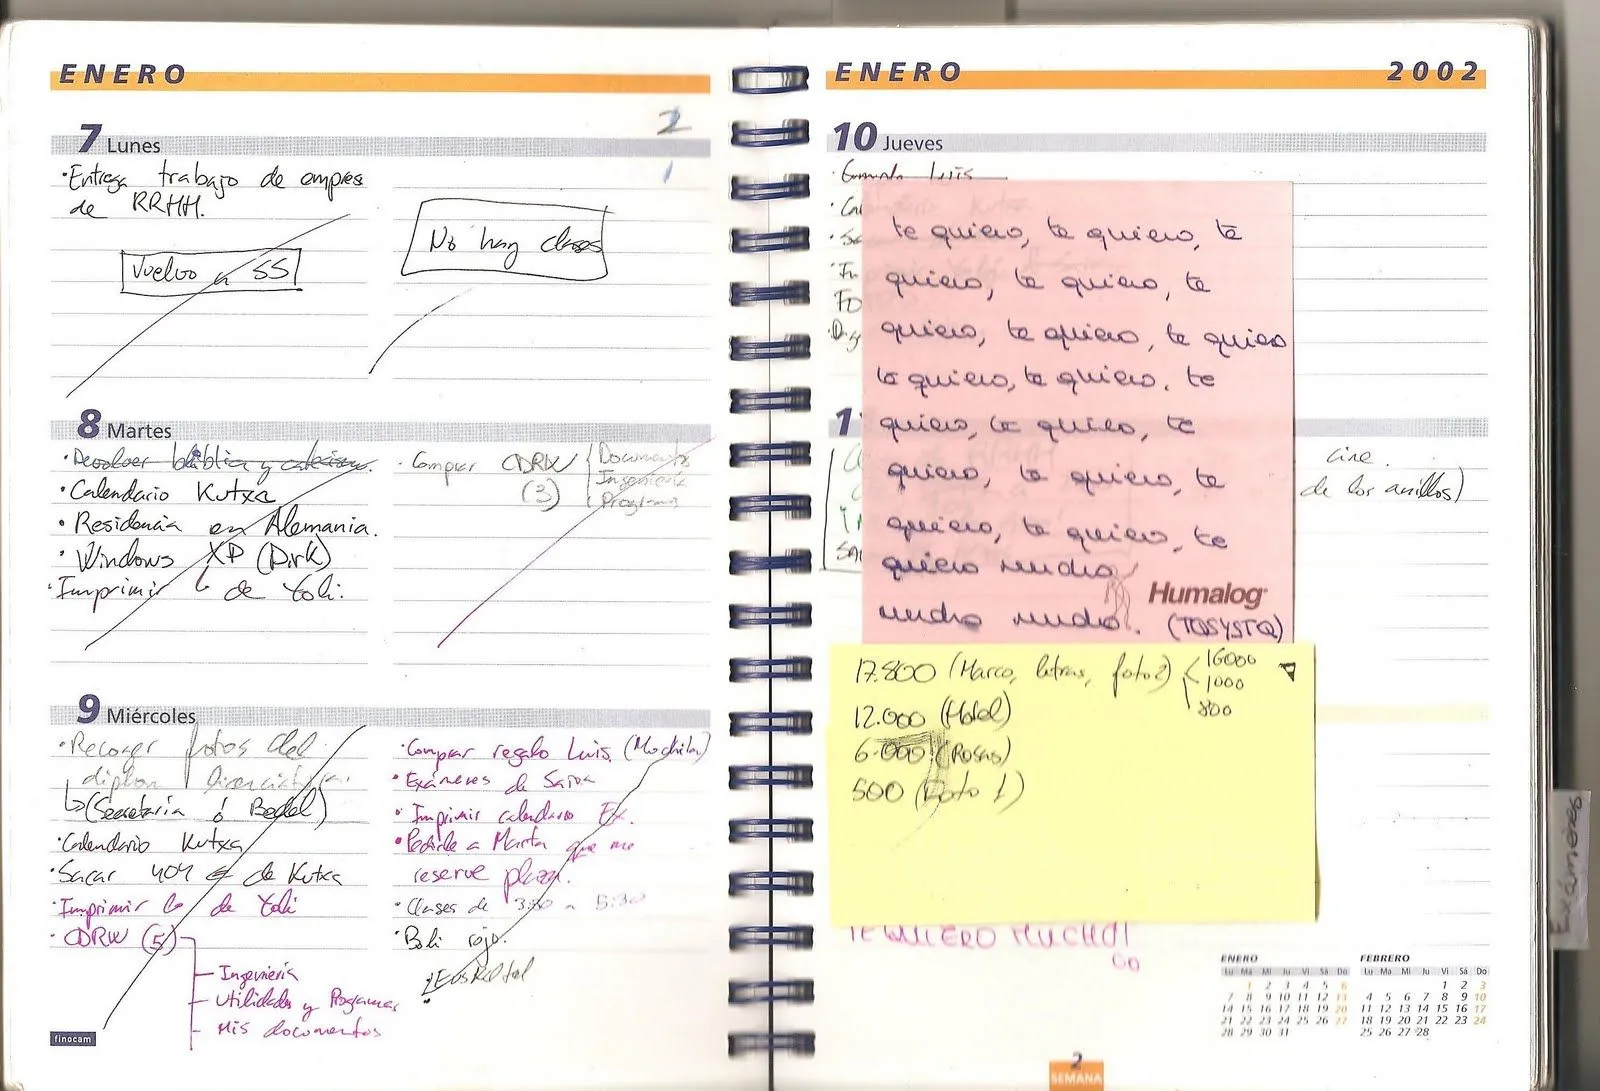 ENERO
7 Lunes
2
1
·Entrega trabajo de empres
de RRHH.
Vuelvo a SS
No hay clases
8 Martes
·Devolver
·Calendario Kutxa
·Residencia en Alemania.
·Windows XP (Dirk)
·Imprimir lo de Yoli.
·Comprar CDRW
(3)
Documentos
Ingeniería
Programas
9 Miércoles
·Recoger fotos del
diplom licenciatura.
(Secretaría ó Bedel)
·Calendario Kutxa
·Sacar 404 € de Kutxa
·Imprimir lo de Yoli
·CDRW (5)
Ingeniería
Utilidades y Programas
Mis documentos
·Comprar regalo Luis (Mochila)
·Exámenes de
·Imprimir calendario Ex.
·Pedirle a Marta que me
reserve plaza.
·Clases de 3:30 a 5:30
·Boli rojo.
finocam
ENERO 2002
10 Jueves
Luis
te quiero, te quiero, te
quiero, te quiero, te
quiero, te quiero, te quiero
te quiero, te quiero, te
quiero, te quiero, te
quiero, te quiero, te
quiero, te quiero, te
quiero mucho,
mucho mucho. (TQSYSTQ)
Humalog
1
cine.
de los anillos)
17.800 (Marco, letras, foto2)
16000
1000
800
12.000 (Hotel)
6.000 (Rosas)
500 (Foto 1)
TE QUIERO MUCHO!
Exámenes
ENERO
Lu Ma Mi Ju Vi Sá Do
1 2 3 4 5 6
7 8 9 10 11 12 13
14 15 16 17 18 19 20
21 22 23 24 25 26 27
28 29 30 31
FEBRERO
Lu Ma Mi Ju Vi Sá Do
1 2 3
4 5 6 7 8 9 10
11 12 13 14 15 16 17
18 19 20 21 22 23 24
25 26 27 28
2
SEMANA